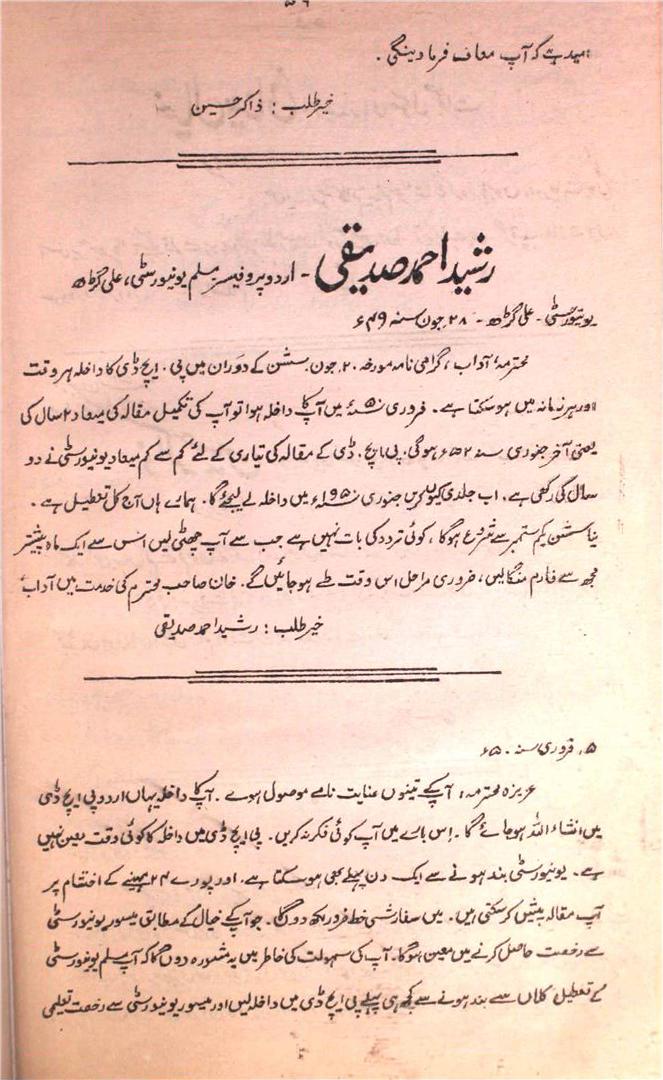 ۵۶
امید ہے کہ آپ معاف فرما دینگی .
خیر طلب : ذاکر حسین
رشید احمد صدیقی - اردو پروفیسر مسلم یونیورسٹی، علی گڑھ
یونیورسٹی - علی گڑھ - ۲۸ جون سنہ ۴۹ء
محترمہ! آداب، گرامی نامہ مورخہ ۲۰ جون. سشن کے دوران میں پی. ایچ ڈی کا داخلہ ہر وقت
اور ہر زمانہ میں ہوسکتا ہے. فروری سنہ ۵۰ء میں آپ کا داخلہ ہوا تو آپ کی تکمیل مقالہ کی میعاد ۲ سال کی
یعنی آخر جنوری سنہ ۵۲ء ہوگی. پی. ایچ. ڈی کے مقالہ کی تیاری کے لئے کم سے کم میعاد یونیورسٹی نے دو
سال کی رکھی ہے. اب جلدی کیوں کریں جنوری سنہ ۱۹۵۰ء میں داخلہ لے لیجئے گا. ہمارے ہاں آج کل تعطیل ہے .
نیا سشن یکم ستمبر سے شروع ہوگا، کوئی تردد کی بات نہیں ہے جب سے آپ چھٹی لیں اس سے ایک ماہ پیشتر
مجھ سے فارم منگالیں، ضروری مراحل اس وقت طے ہوجائیں گے. خان صاحب محترم کی خدمت میں آداب
خیر طلب : رشید احمد صدیقی
۵، فروری سنہ ۵۰ء
عزیزہ محترمہ! آپکے تینوں عنایت نامے موصول ہوے. آپ کا داخلہ یہاں اردو پی ایچ ڈی
میں انشاء اللہ ہوجائے گا. اس بارے میں آپ کوئی فکر نہ کریں. پی ایچ ڈی میں داخلہ کا کوئی وقت معین نہیں
ہے. یونیورسٹی بند ہونے سے ایک دن پہلے بھی ہوسکتا ہے. اور پورے ۲۴ مہینے کے اختتام پر
آپ مقالہ پیش کرسکتی ہیں. میں سفارشی خط ضرور لکھ دوں گا. جو آپکے خیال کے مطابق میسور یونیورسٹی
سے رخصت حاصل کرنے میں معین ہوگا. آپ کی سہولت کی خاطر میں یہ مشورہ دوں گا کہ آپ مسلم یونیورسٹی
کے تعطیل کلاں سے بند ہونے سے کچھ ہی پہلے پی ایچ ڈی میں داخلہ لیں اور میسور یونیورسٹی سے رخصت تعلیمی